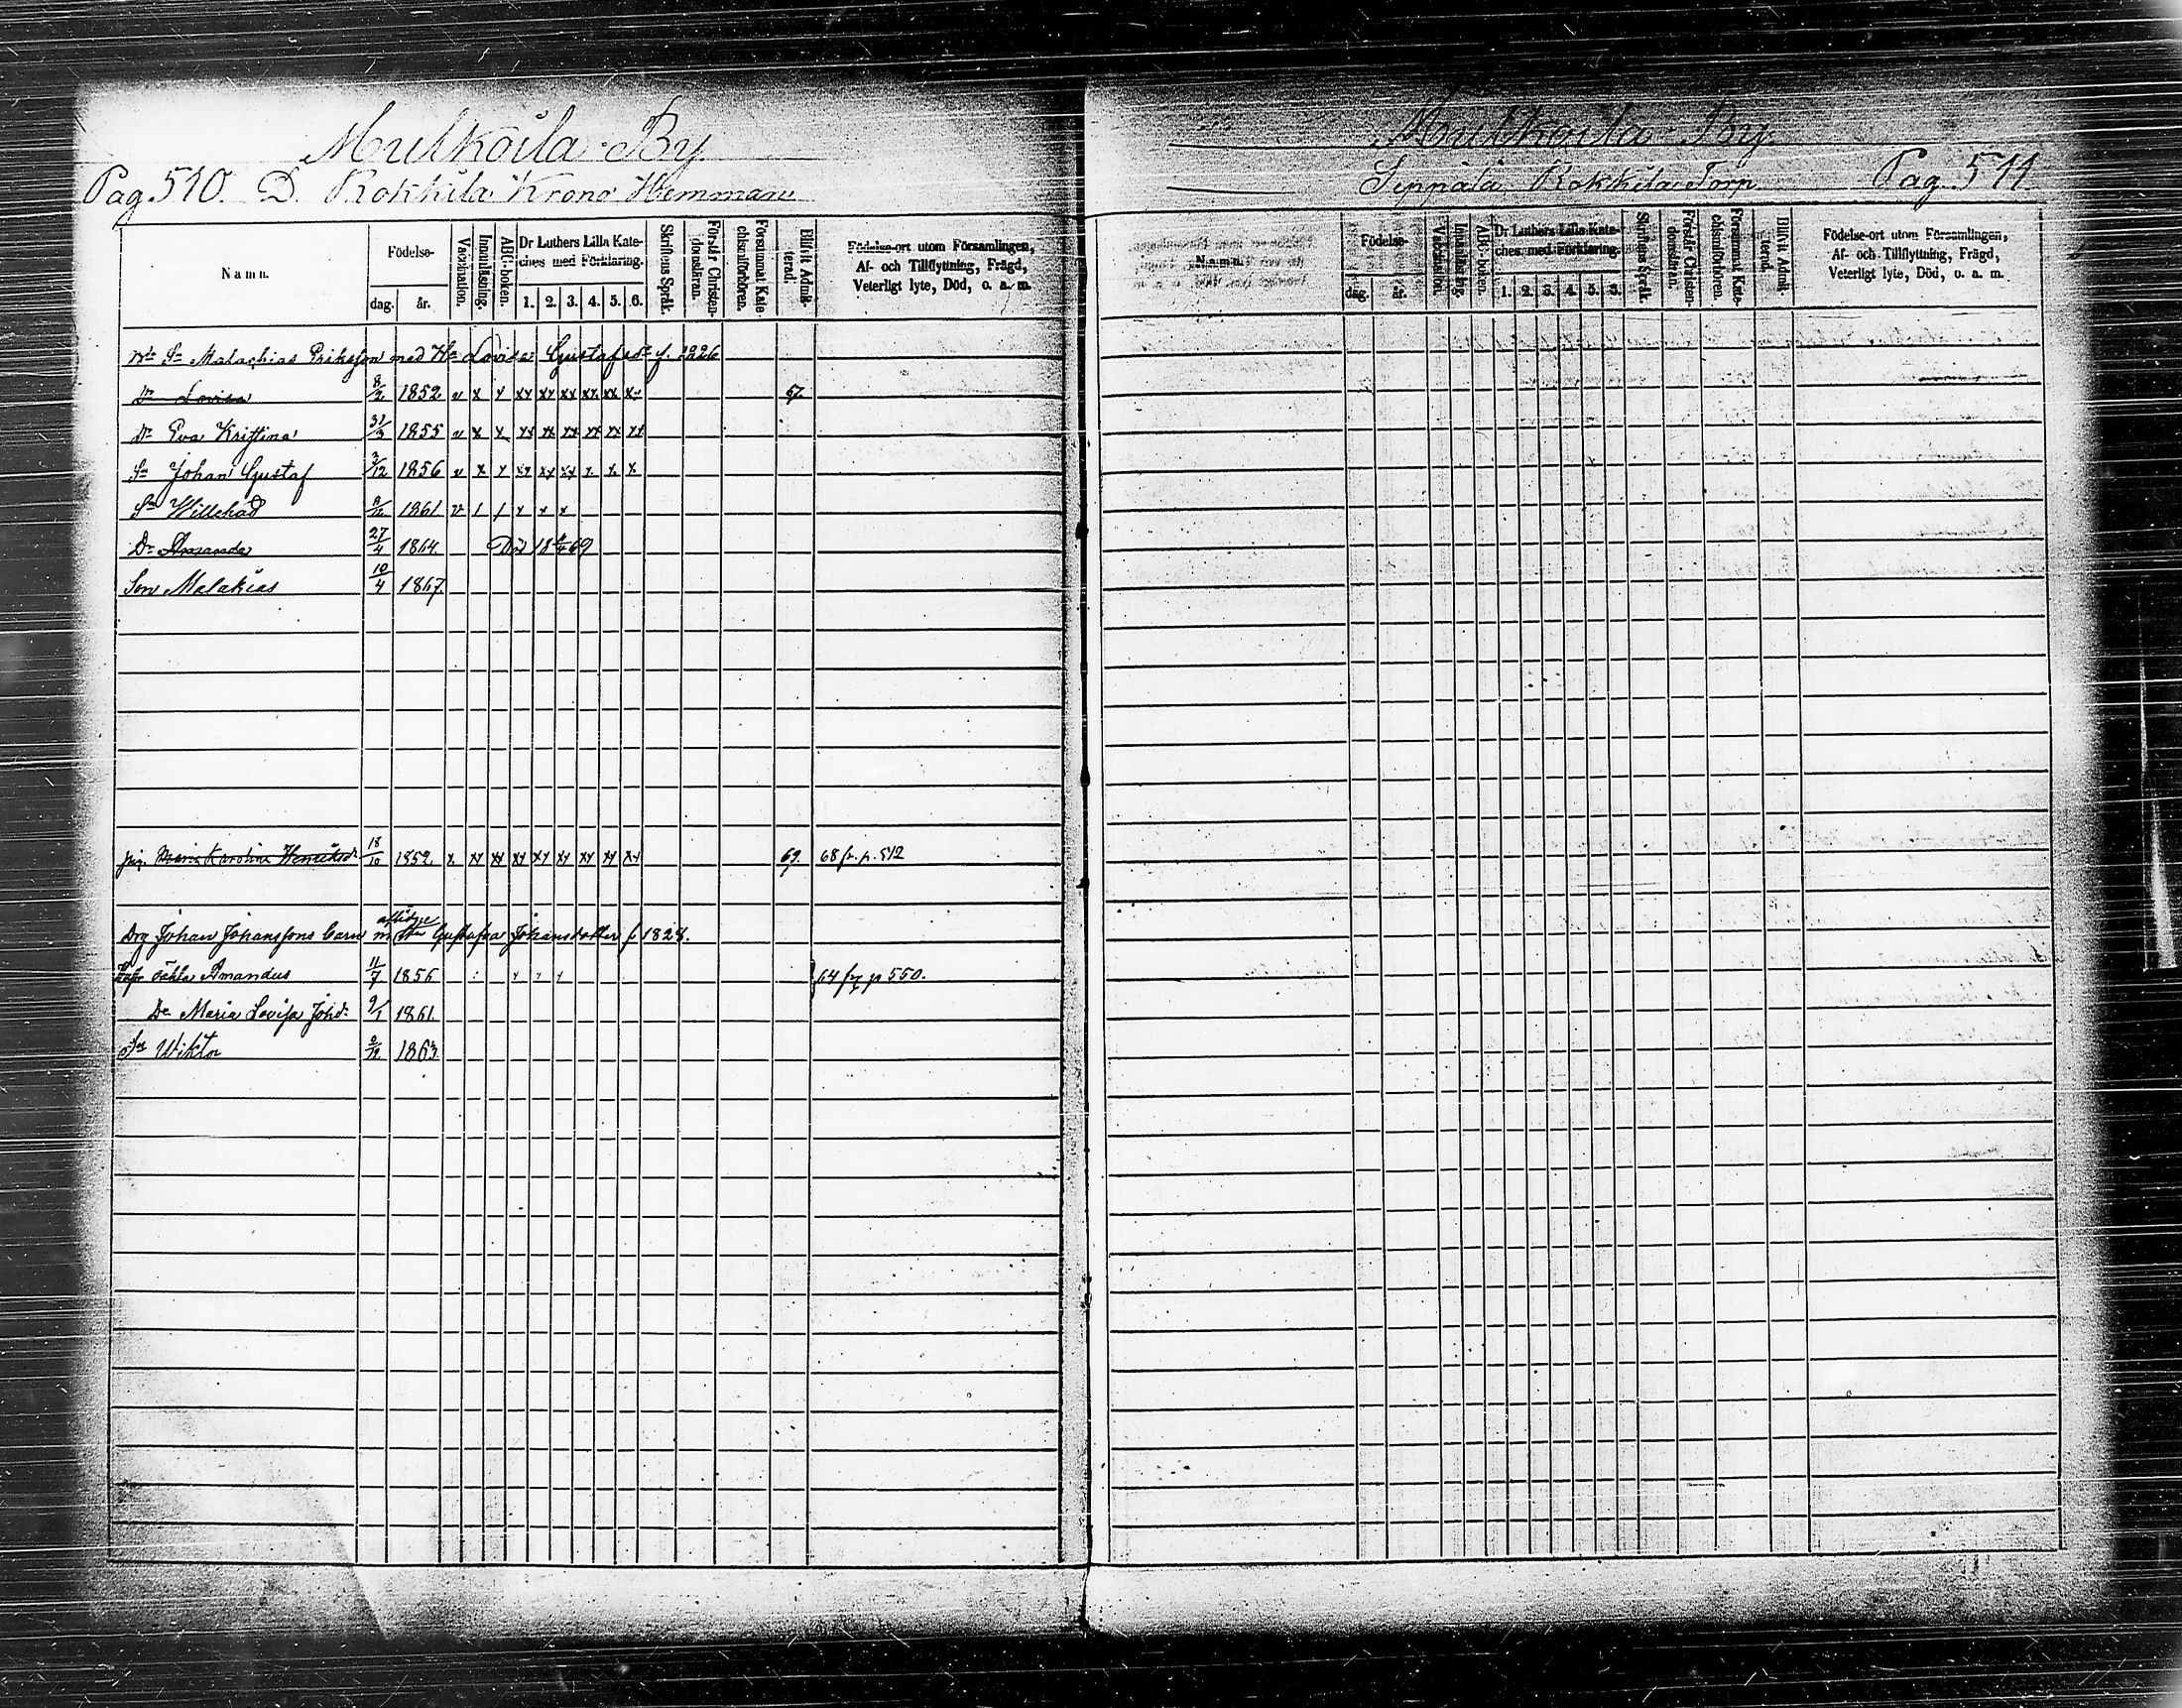 Mulkoila By
Pag. 510. D. Kokkila Krono Hemman
Namn.
Födelse-
dag.
år.
Vaccination.
Innanläsning.
ABC-boken.
Dr Luthers Lilla Kate-
ches med Förklaring.
1. 2. 3. 4. 5. 6.
Skriftens Språk.
Förstår Christen-
domsläran.
Försummat Kate-
chismiförhören.
Blifvit Admit-
terad.
Födelse-ort utom Församlingen,
Af- och Tillflyttning, Frägd,
Veterligt lyte, Död, o. a. m.
Malachias Eriksson med Hu Lovisa Gustafsdr f.
Dr Lovisa 8/2 1852 v x x xx xx xx xx xx xx 67.
Dr Eva Kristina 31/3 1855 v x x xx xx xx xx xx xx
Sn Johan Gustaf 3/12 1856 v x x xx xx xx x x x
Sn Willehad 1861 v / / x x x
Dr Amanda 27/4 1864. Död 69
Son Malakias 10/4 1867.
pig. Maria Karolina Henriksdr 18/10 1852. x xx xx xx xx xx xx xx xx 69. 68 fr. p. 512
Drg Johan Johanssons barn m aflidne Gustafva Johansdotter f. 1828.
Amandus 11/7 1856 64 p 550.
Dr Maria Lovisa Johdr 9/1 1861.
Sn Wiktor 1863
Mulkoila By.
Seppälä Kokkila Torp Pag. 511
Namn.
Födelse-
dag.
år.
Vaccination.
Innanläsning.
ABC-boken.
Dr Luthers Lilla Kate-
ches med Förklaring.
1. 2. 3. 4. 5. 6.
Skriftens Språk.
Förstår Christen-
domsläran.
Försummat Kate-
chismiförhören.
Blifvit Admit-
terad.
Födelse-ort utom Församlingen,
Af- och Tillflyttning, Frägd,
Veterligt lyte, Död, o. a. m.